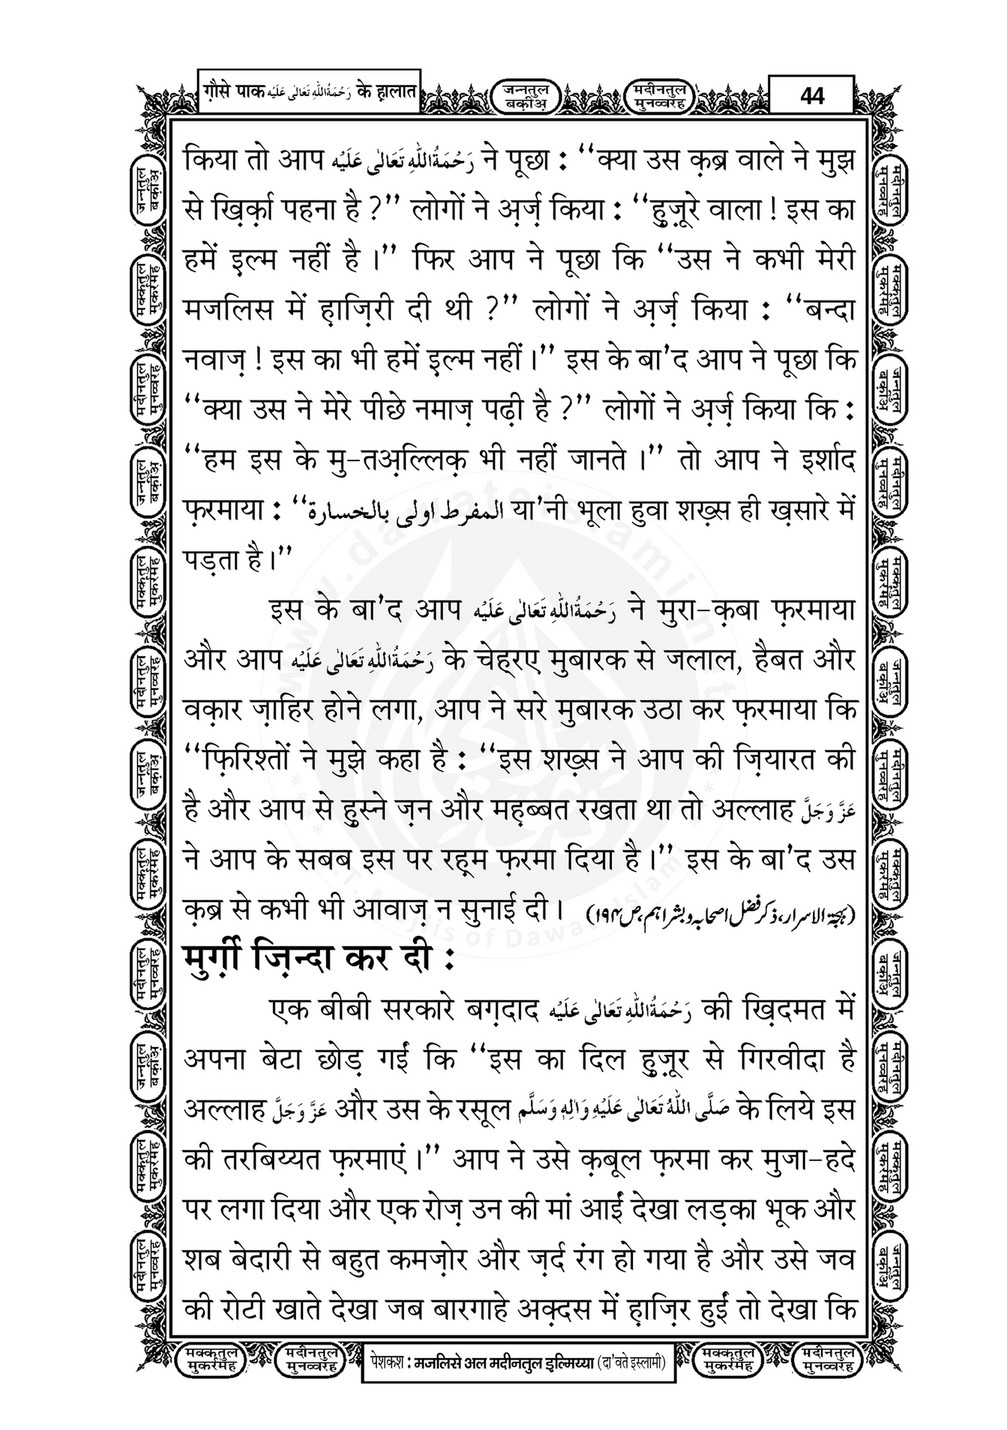 ग़ौसे पाक رَحْمَةُاللهِ تَعَالٰی عَلَيْه के ह़ालात
जन्नतुल बक़ीअ़
मदीनतुल मुनव्वरह
44
किया तो आप رَحْمَةُاللهِ تَعَالٰی عَلَيْه ने पूछा : ‘‘क्या उस क़ब्र वाले ने मुझ
से ख़िर्क़ा पहना है ?’’ लोगों ने अ़र्ज़ किया : ‘‘हुज़ूरे वाला ! इस का
हमें इ़ल्म नहीं है ।’’ फिर आप ने पूछा कि ‘‘उस ने कभी मेरी
मजलिस में ह़ाज़िरी दी थी ?’’ लोगों ने अ़र्ज़ किया : ‘‘बन्दा
नवाज़ ! इस का भी हमें इ़ल्म नहीं ।’’ इस के बा’द आप ने पूछा कि
‘‘क्या उस ने मेरे पीछे नमाज़ पढ़ी है ?’’ लोगों ने अ़र्ज़ किया कि :
‘‘हम इस के मु-तअ़ल्लिक़ भी नहीं जानते ।’’ तो आप ने इर्शाद
फ़रमाया : ‘‘المفرط اولی بالخسارة या’नी भूला हुवा शख़्स ही ख़सारे में
पड़ता है ।’’
इस के बा’द आप رَحْمَةُاللهِ تَعَالٰی عَلَيْه ने मुरा-क़बा फ़रमाया
और आप رَحْمَةُاللهِ تَعَالٰی عَلَيْه के चेहरए मुबारक से जलाल, हैबत और
वक़ार ज़ाहिर होने लगा, आप ने सरे मुबारक उठा कर फ़रमाया कि
‘‘फ़िरिश्तों ने मुझे कहा है : ‘‘इस शख़्स ने आप की ज़ियारत की
है और आप से हुस्ने ज़न और मह़ब्बत रखता था तो अल्लाह عَزَّ وَجَلَّ
ने आप के सबब इस पर रह़्म फ़रमा दिया है ।’’ इस के बा’द उस
क़ब्र से कभी भी आवाज़ न सुनाई दी । (بہجۃ الاسرار، ذکر فضل اصحابہ و بشراہم، ص١٩٤)
मुर्ग़ी ज़िन्दा कर दी :
एक बीबी सरकारे बग़दाद رَحْمَةُاللهِ تَعَالٰی عَلَيْه की ख़िदमत में
अपना बेटा छोड़ गईं कि ‘‘इस का दिल हुज़ूर से गिरवीदा है
अल्लाह عَزَّ وَجَلَّ और उस के रसूल صَلَّى اللهُ تَعَالٰی عَلَيْهِ وَاٰلِهٖ وَسَلَّم के लिये इस
की तरबिय्यत फ़रमाएं ।’’ आप ने उसे क़बूल फ़रमा कर मुजा-हदे
पर लगा दिया और एक रोज़ उन की मां आईं देखा लड़का भूक और
शब बेदारी से बहुत कमज़ोर और ज़र्द रंग हो गया है और उसे जव
की रोटी खाते देखा जब बारगाहे अक़्दस में ह़ाज़िर हुईं तो देखा कि
मक्कतुल मुकर्रमह
मदीनतुल मुनव्वरह
पेशकश : मजलिसे अल मदीनतुल इ़ल्मिय्या (दा’वते इस्लामी)
मक्कतुल मुकर्रमह
मदीनतुल मुनव्वरह